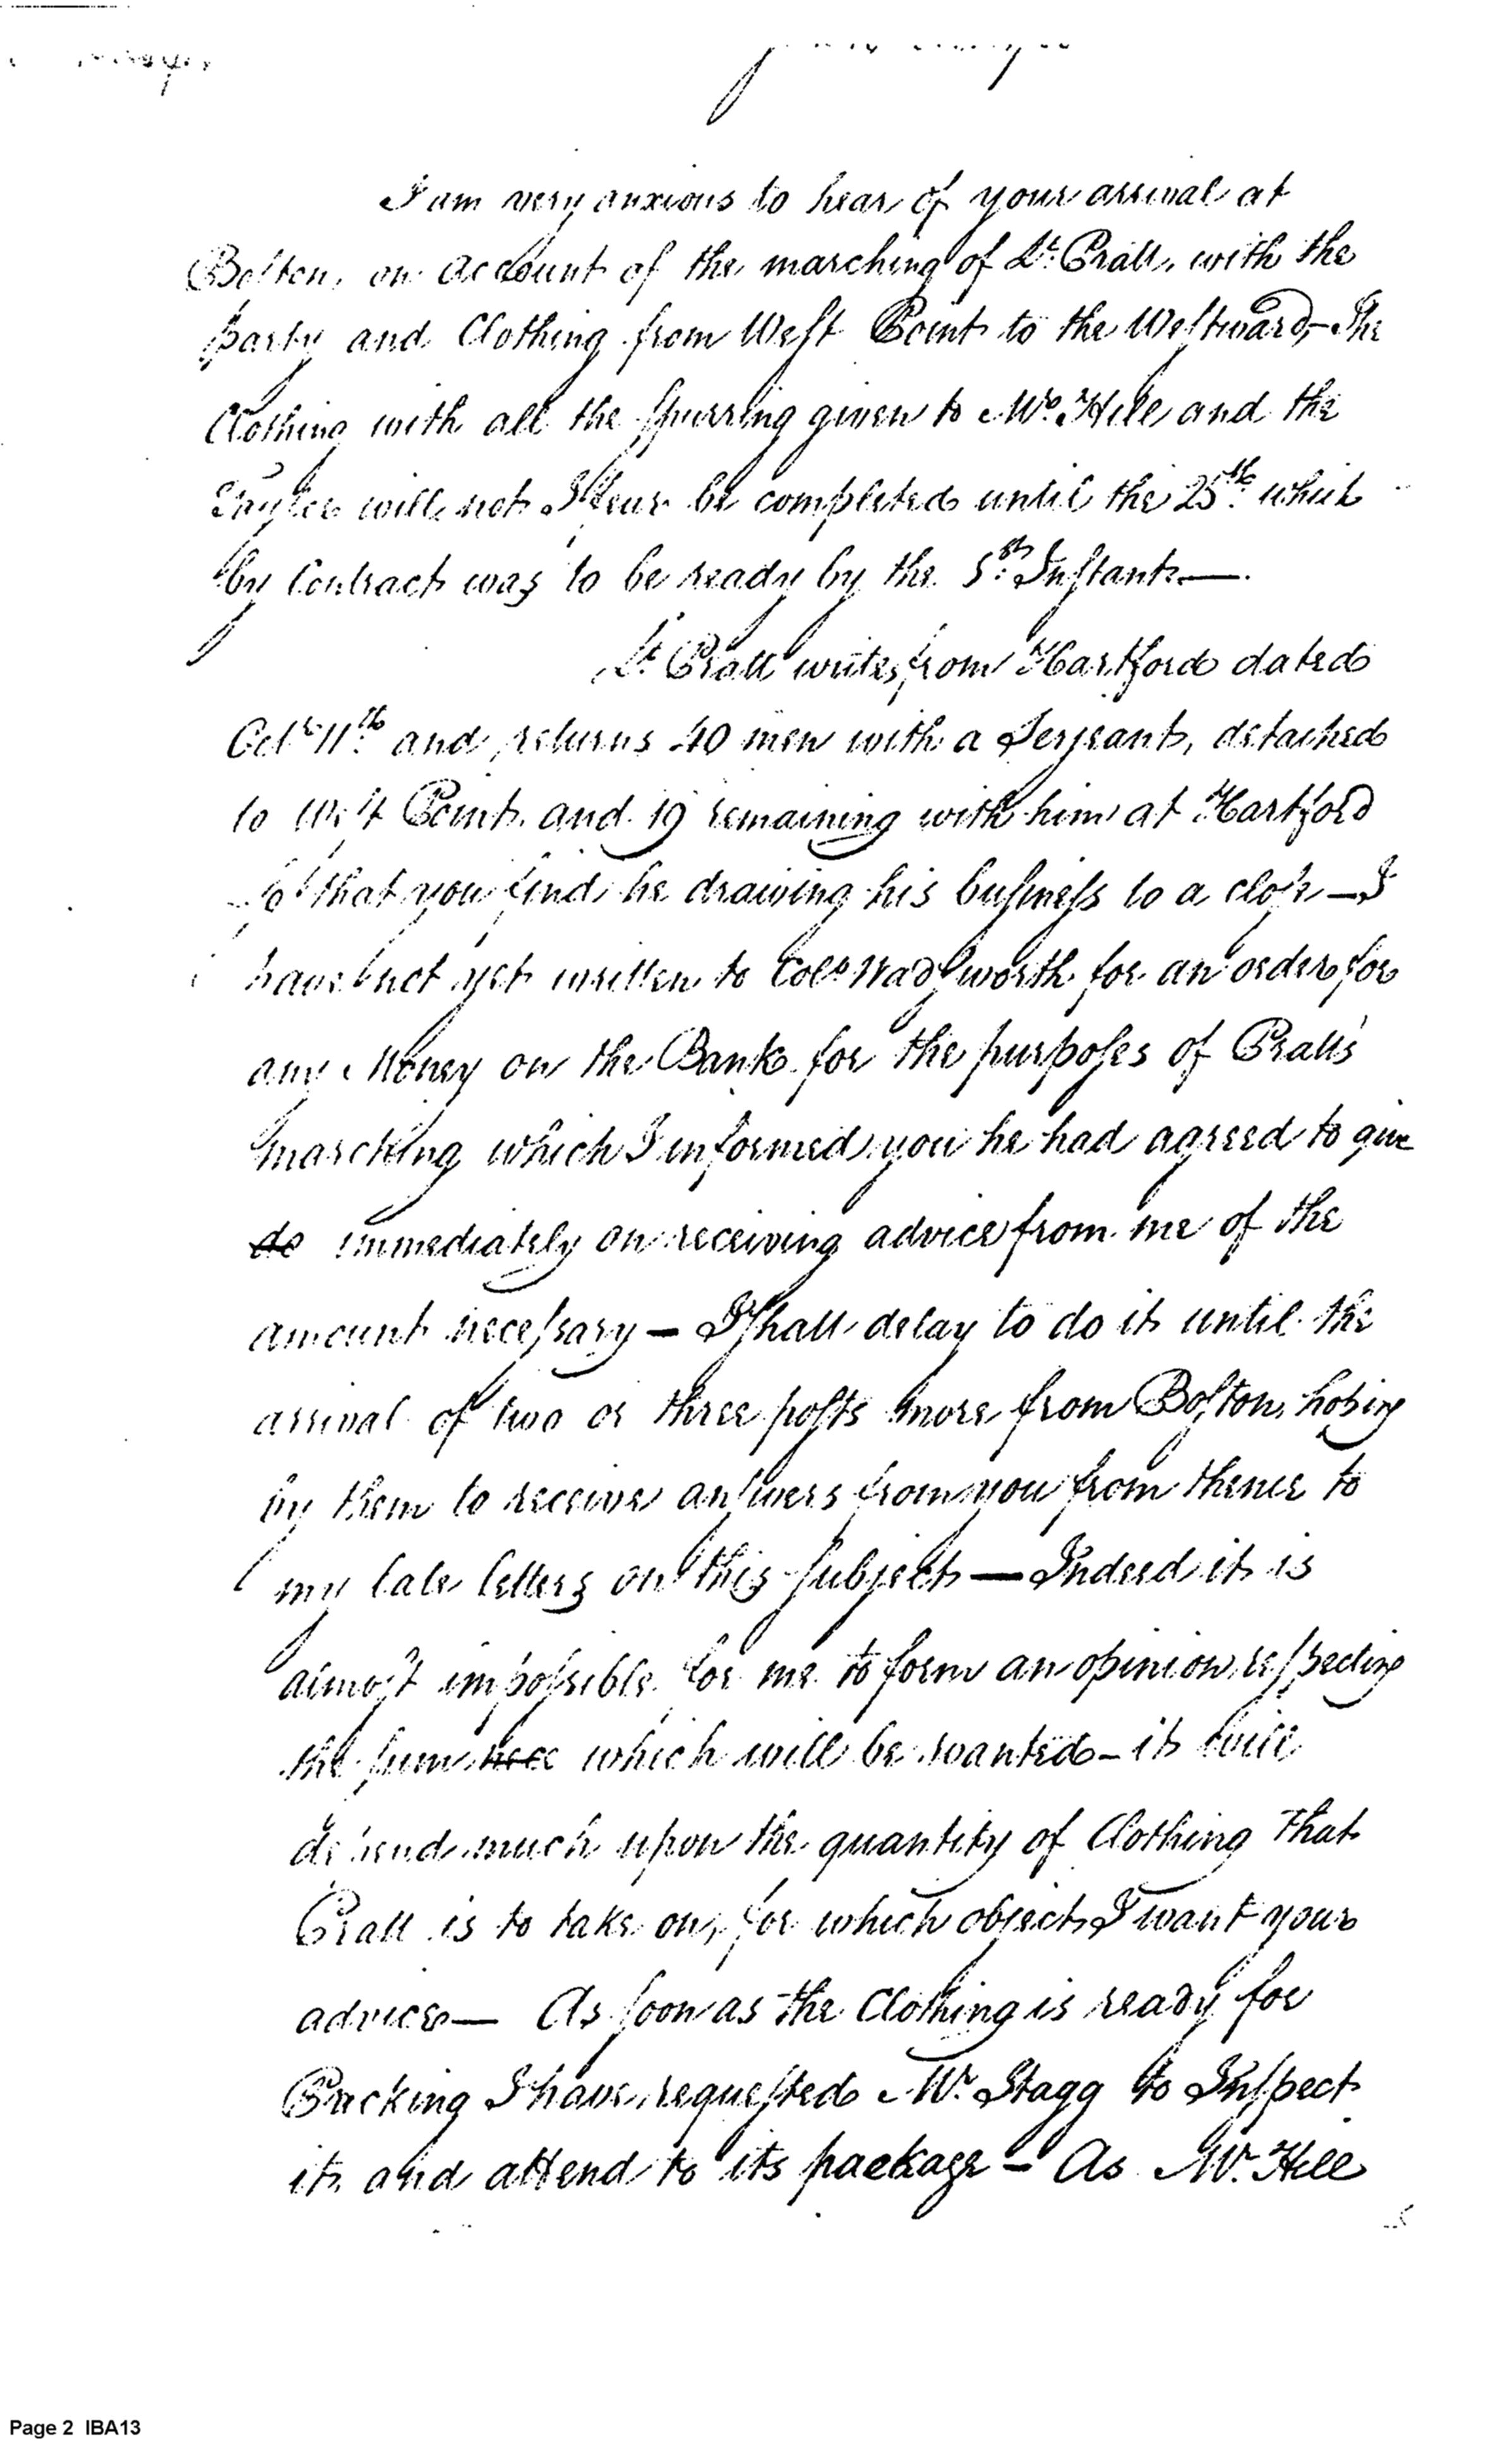 I am very anxious to hear of your arrival at
Boston, on account of the marching of Lt. Pratt, with the
party and Clothing from West Point to the Westward,—The
Clothing with all the spurring given to Mr. Hill and the
will not I fear be completed until the 25th. which
by Contract was to be ready by the 5th. Instant—.
Lt. Pratt writes from Hartford dated
Octr. 11th. and returns 40 men with a Serjeant, detached
to West Point, and 19 remaining with him at Hartford
so that you find he drawing his business to a close—I
have not yet written to Colo. Wadsworth for an order for
any Money on the Bank for the purposes of Pratts
marching which I informed you he had agreed to give
do immediately on receiving advice from me of the
amount necessary — I shall delay to do it until the
arrival of two or three posts more from Boston, hoping
by them to receive answers from you from thence to
my late letters on this subject — Indeed it is
almost impossible for me to form an opinion respecting
the sum nece which will be wanted — it will
depend much upon the quantity of Clothing that
Pratt is to take on, for which object I want your
advice — As soon as the Clothing is ready for
Packing I have requested Mr. Stagg to Inspect
it and attend to its package — As Mr. Hill
Page 2 IBA13